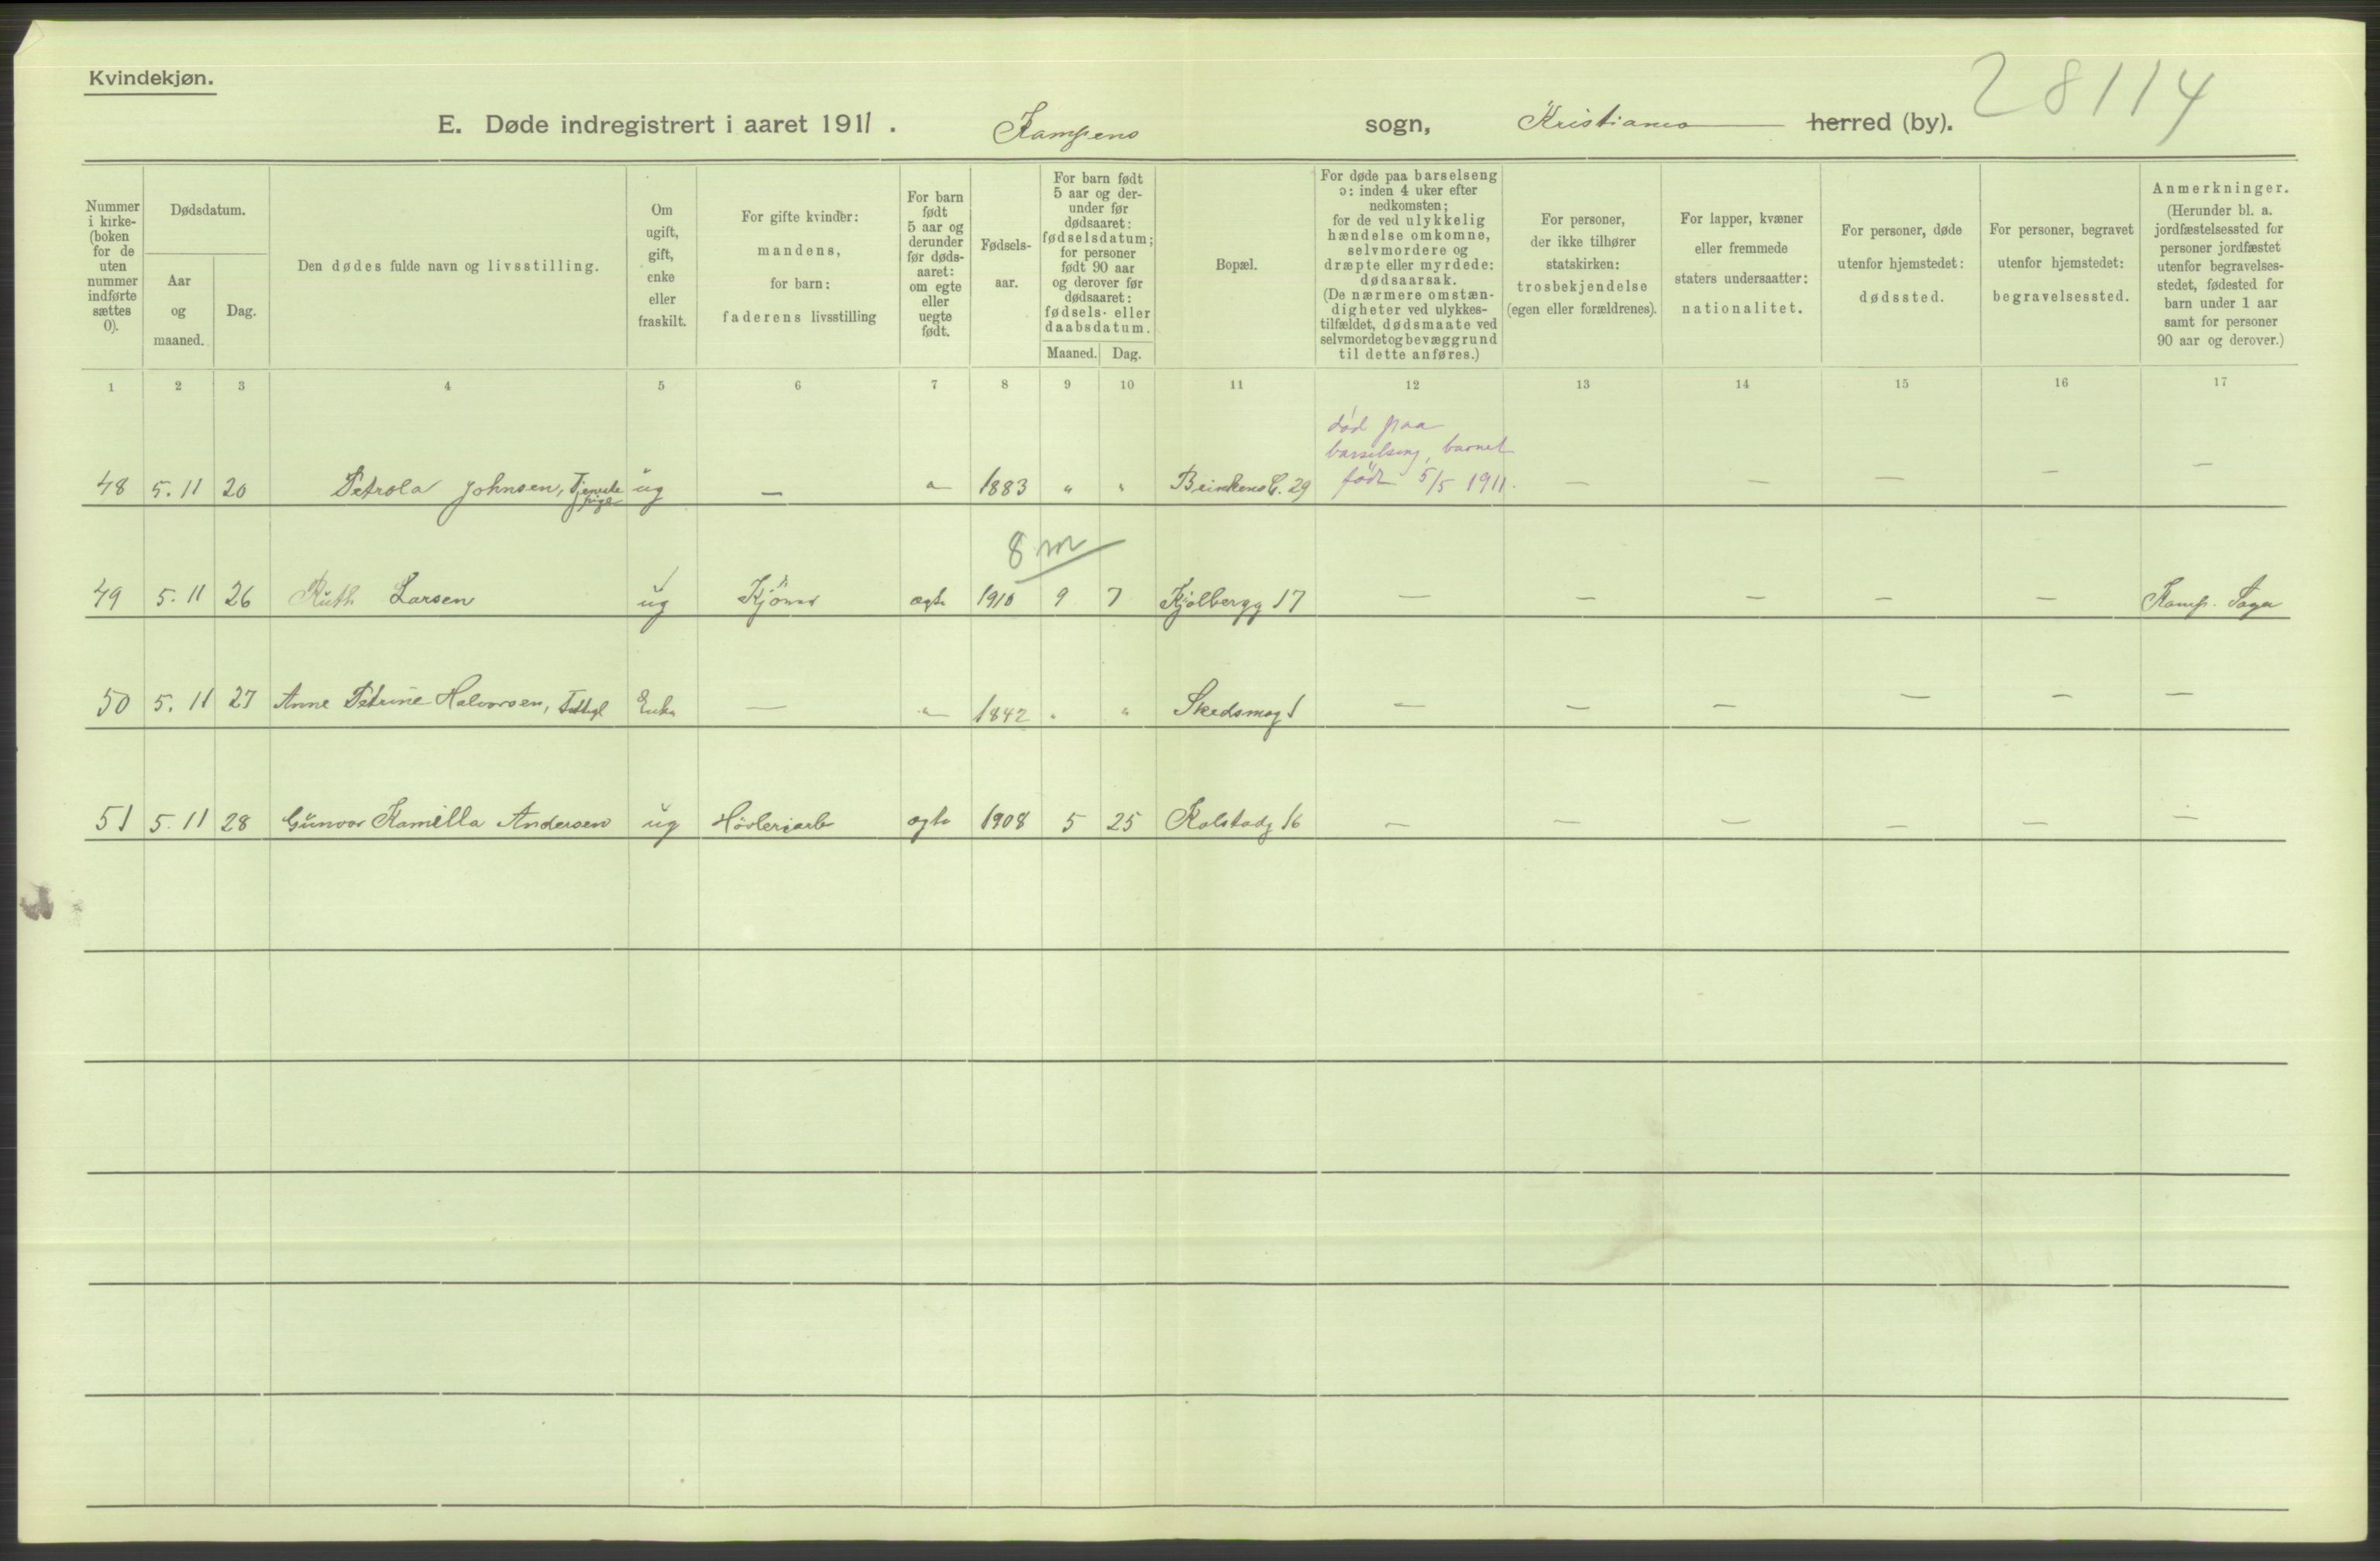 Kvindekjøn.
28114
E. Døde indregistrert i aaret 1911. Kampens sogn, Kristiania herred (by).
Nummer i kirke-(boken for de uten nummer indførte sættes 0).
Dødsdatum.
Aar og maaned.
Dag.
Den dødes fulde navn og livsstilling.
Om ugift, gift, enke eller fraskilt.
For gifte kvinder: mandens, for barn: faderens livsstilling
For barn født 5 aar og derunder før døds-aaret: om egte eller uegte født.
Fødsels-aar.
For barn født 5 aar og der-under før dødsaaret: fødselsdatum; for personer født 90 aar og derover før dødsaaret: fødsels- eller daabsdatum.
Maaned. Dag.
Bopæl.
For døde paa barselseng ɔ: inden 4 uker efter nedkomsten; for de ved ulykkelig hændelse omkomne, selvmordere og dræpte eller myrdede: dødsaarsak. (De nærmere omstæn-digheter ved ulykkes-tilfældet, dødsmaate ved selvmordet og bevæggrund til dette anføres.)
For personer, der ikke tilhører statskirken: trosbekjendelse (egen eller forældrenes).
For lapper, kvæner eller fremmede staters undersaatter: nationalitet.
For personer, døde utenfor hjemstedet: dødssted.
For personer, begravet utenfor hjemstedet: begravelsessted.
Anmerkninger. (Herunder bl. a. jordfæstelsessted for personer jordfæstet utenfor begravelses-stedet, fødested for barn under 1 aar samt for personer 90 aar og derover.)
1 2 3 4 5 6 7 8 9 10 11 12 13 14 15 16 17
død paa
barselseng, barnet
født 5/5 1911.
48 5.11 20 Petrola Johnsen, Tjeneste pige ug — " 1883 " " Brinkens G. 29 — — — — —
8 m
49 5.11 26 Ruth Larsen ug egte 1910 9 7 Kjølbergg 17 — — — — — Kamp.
50 5.11 27 Anne Petrine Halvorsen, Enke — " 1842 " " Skedsmog 1 — — — — — —
51 5.11 28 Gunvor Kamilla Andersen ug Høvleriarb egte 1908 5 25 Kolstadg 16 — — — — — —